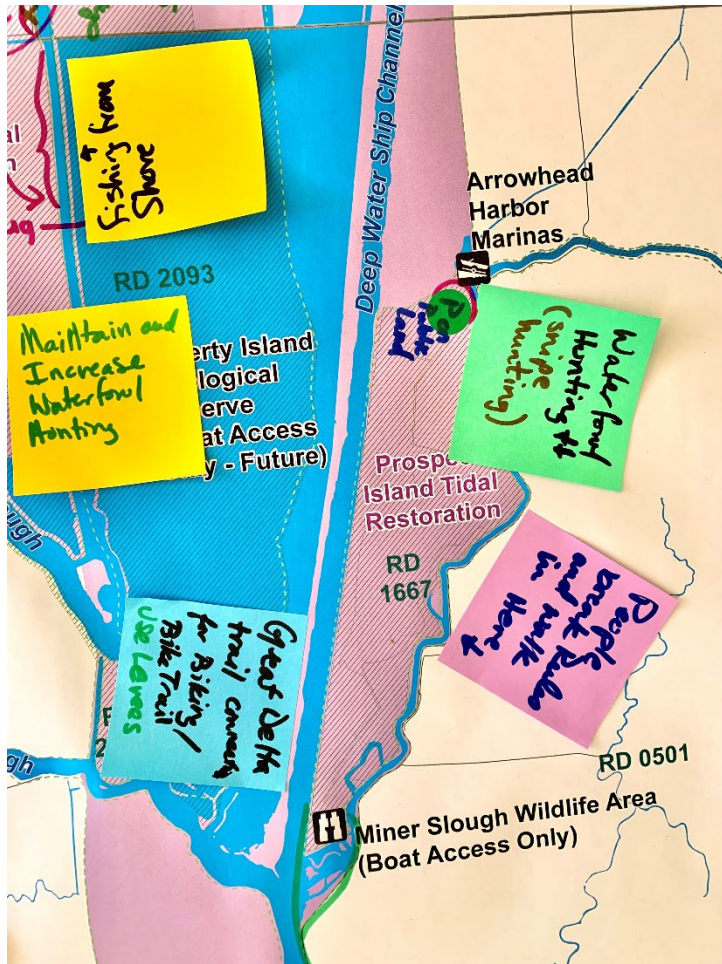 Deep Water Ship Channel
Fishing from
Shore
RD 2093
Arrowhead
Harbor
Marinas
P on
Public
Land
Maintain and
Increase
Waterfowl
Hunting
erty Island
logical
erve
at Access
y - Future)
Waterfowl
Hunting
(snipe
hunting)
Prospe
Island Tidal
Restoration
RD
1667
People
break Rules
and walk
in Here
Great Delta
trail
for Biking/
Bike Trail
Use Levees
RD 0501
Miner Slough Wildlife Area
(Boat Access Only)
ough
gh